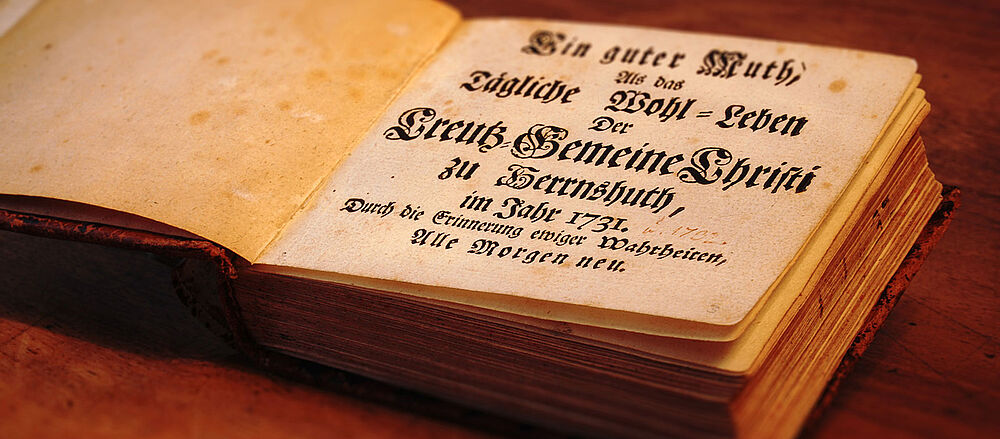 Ein guter Muth,
Als das
Tägliche Wohl-Leben
Der
Creutz-Gemeine Christi
zu Herrnshuth,
im Jahr 1731.
Durch die Erinnerung ewiger Wahrheiten,
Alle Morgen neu.